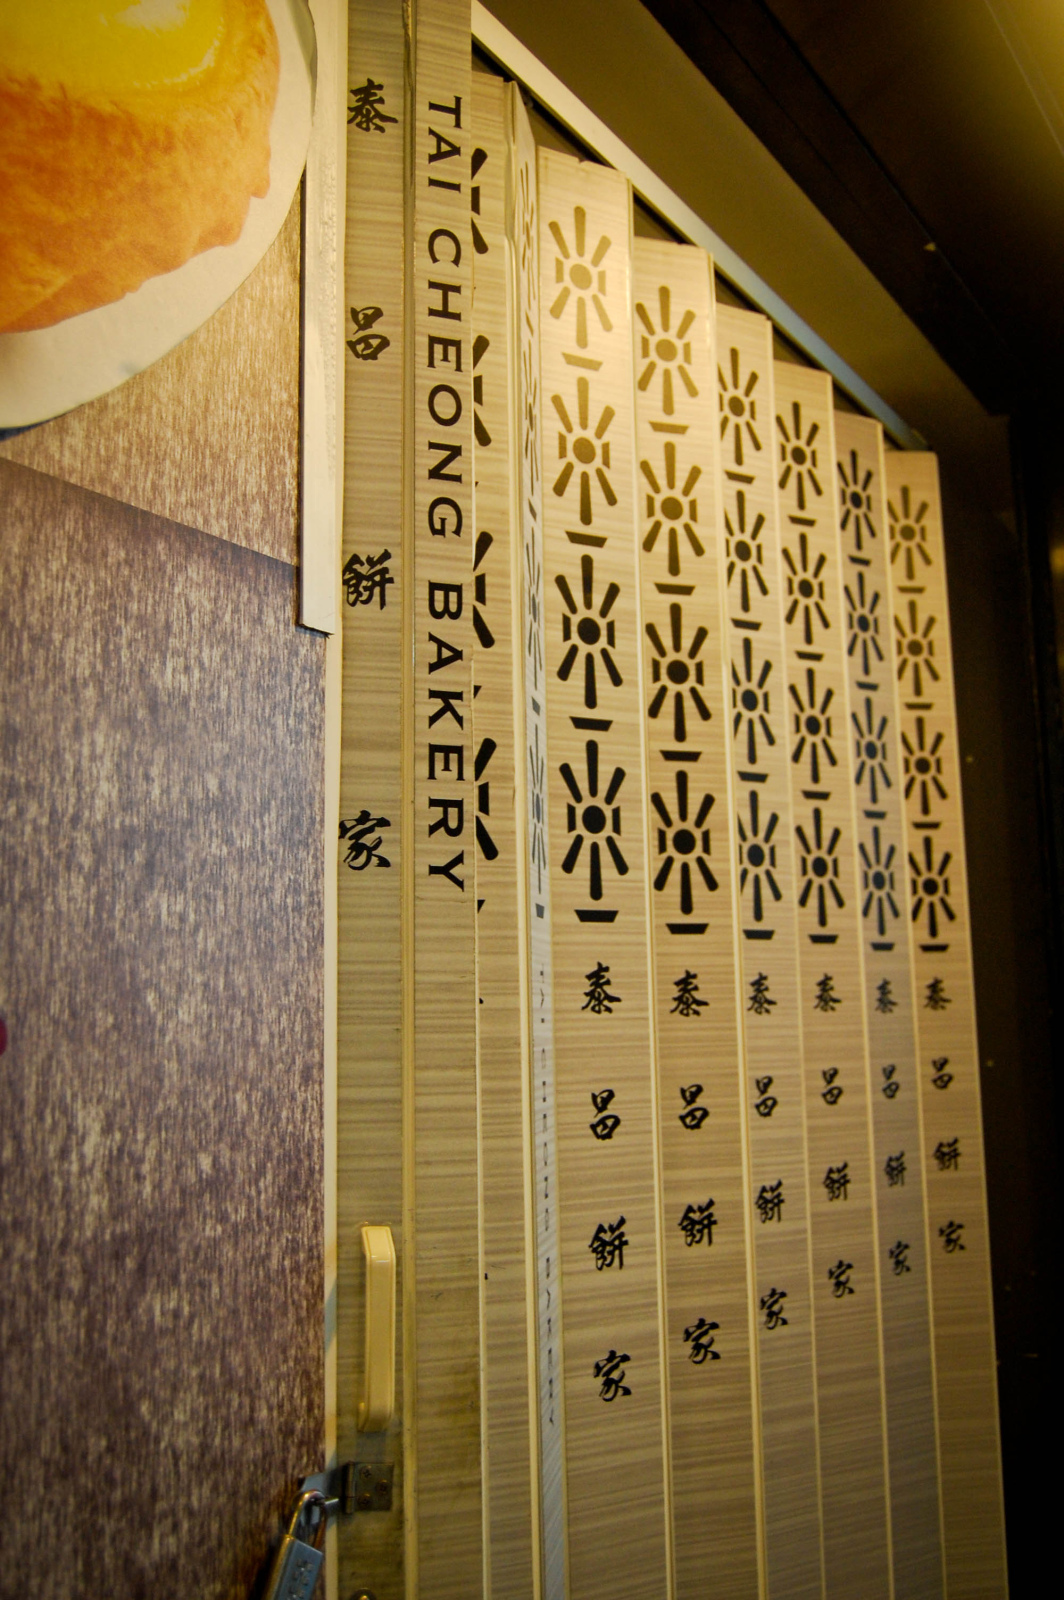 泰昌餅家
TAI CHEONG BAKERY
泰昌餅家
泰昌餅家
泰昌餅家
泰昌餅家
泰昌餅家
泰昌餅家